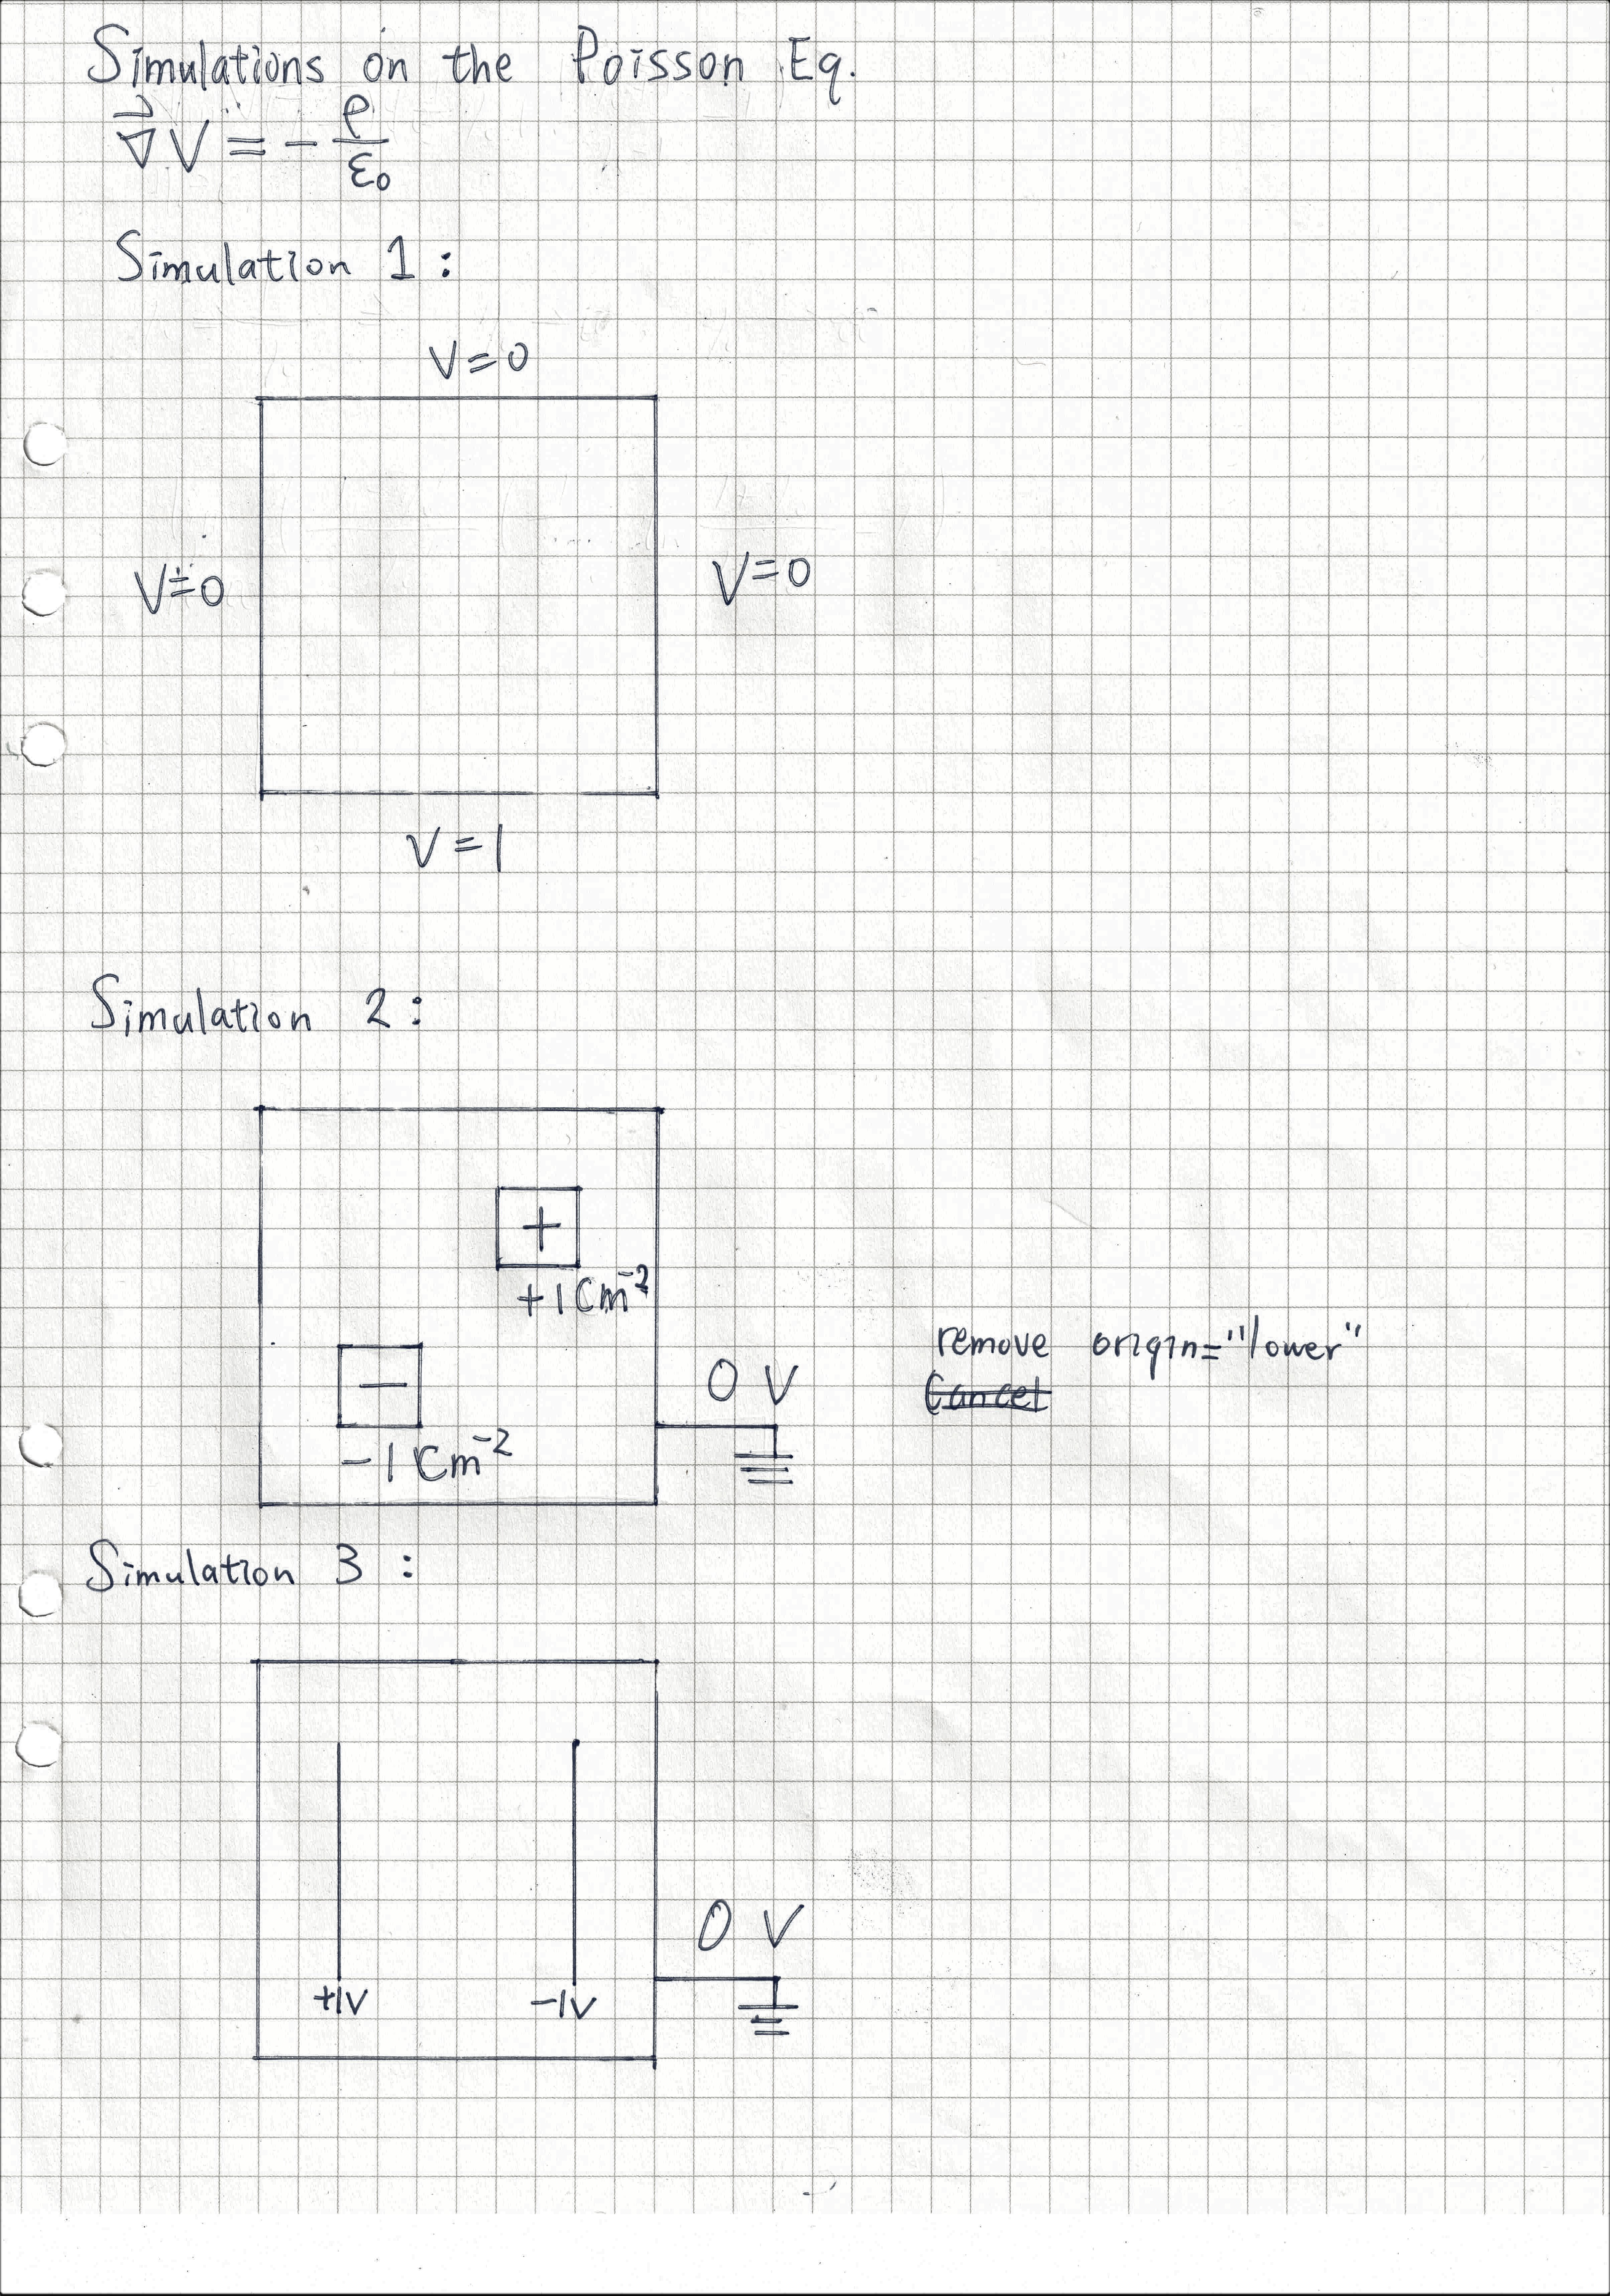 Simulations on the Poisson Eq.
∇⃗V = - ρ/ε₀
Simulation 1 :
V=0
V=0
V=0
V=1
Simulation 2 :
+
+1Cm⁻²
remove origin="lower"
Cancel
0 V
−
−1Cm⁻²
Simulation 3 :
0 V
+1V
−1V